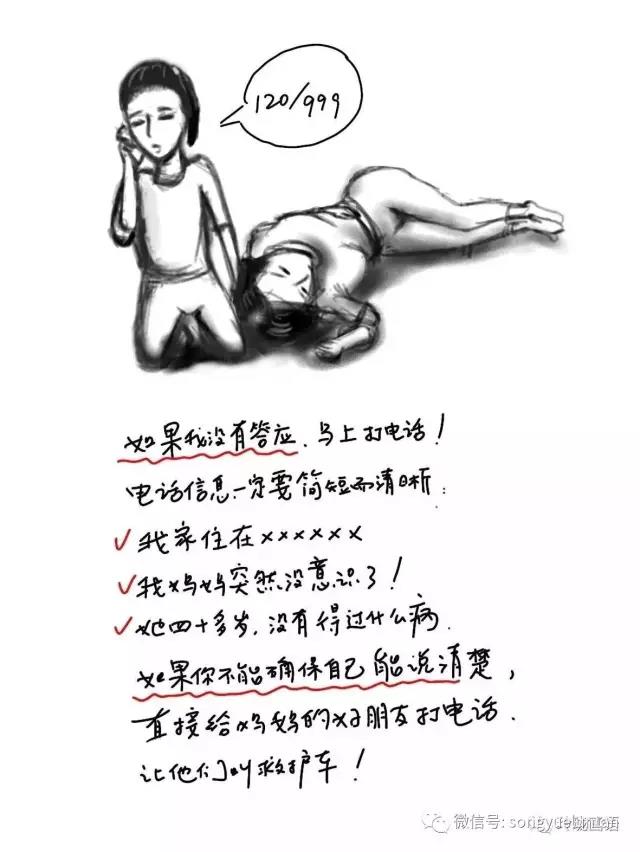 120/999
如果我没有答应、马上打电话！
电话信息一定要简短而清晰：
✓我家住在××××××
✓我妈妈突然没意识了！
✓她四十多岁，没有得过什么病．
如果你不能确保自己能说清楚，
直接给妈妈的好朋友打电话．
让他们叫救护车！
微信号: songyue